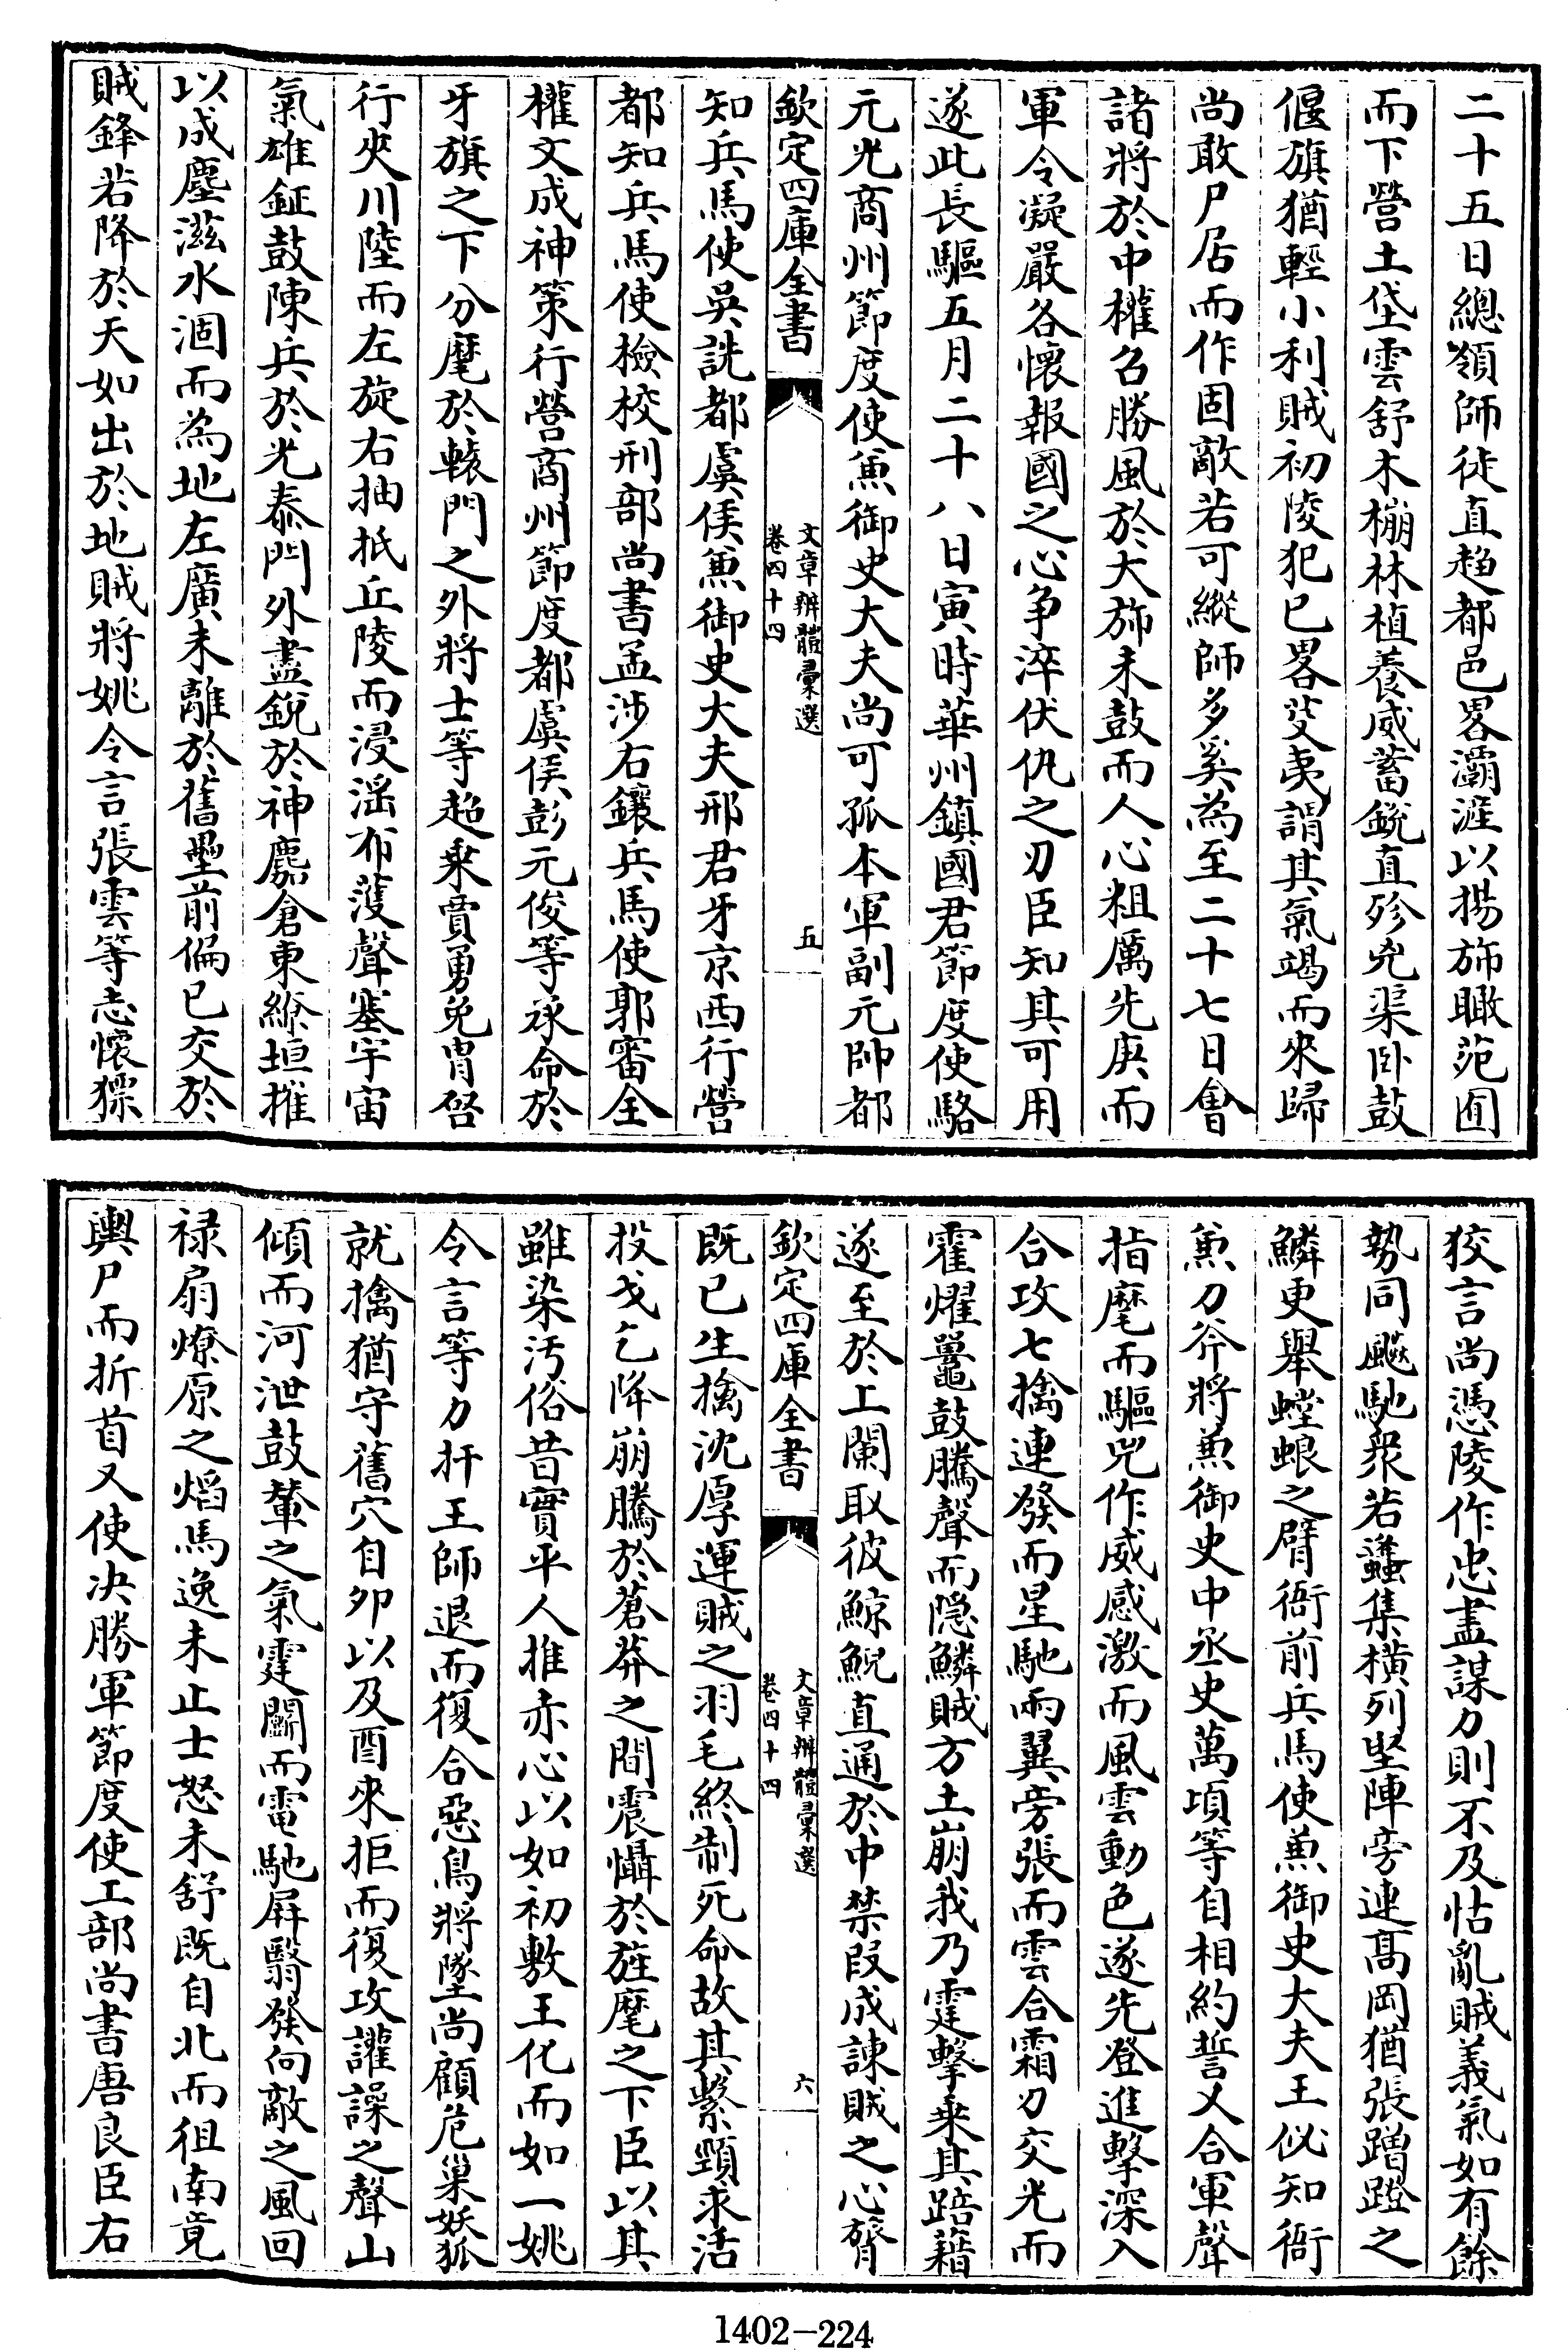 二十五日總領師徒直趋都邑畧灞滻以揚斾瞰苑囿
而下營土垡雲舒木棚林植養威蓄銳直殄兇渠卧鼓
偃旗猶輕小利賊初陵犯已畧芟夷謂其氣竭而來歸
尚敢尸居而作固敵若可縱師多奚為至二十七日會
諸將於中權召勝風於大斾未鼓而人心粗厲先庚而
軍令凝嚴各懷報國之心争淬伏仇之刃臣知其可用
遂此長驅五月二十八日寅時華州鎮國君節度使駱
元光商州節度使兼御史大夫尚可孤本軍副元帥都
欽定四庫全書
文章辨體彙選
卷四十四
五
知兵馬使吳詵都虞侯兼御史大夫邢君牙京西行營
都知兵馬使檢校刑部尚書孟涉右鑲兵馬使郭審全
權文成神策行營商州節度都虞侯彭元俊等承命於
牙旗之下分麾於轅門之外將士等超乘賈勇免胄啓
行夾川陸而左旋右抽抵丘陵而浸淫布濩聲塞宇宙
氣雄鉦鼓陳兵於光泰門外盡銳於神麚倉東繚垣摧
以成塵滋水涸而為地左廣未離於舊壘前偏已交於
賊鋒若降於天如出於地賊將姚令言張雲等志懷獝
狡言尚憑陵作忠盡謀力則不及怙亂賊義氣如有餘
勢同飈馳衆若蠭集横列堅陣旁連髙岡猶張蹭蹬之
鱗更舉螳蜋之臂衙前兵馬使兼御史大夫王佖知衙
兼刀斧將兼御史中丞史萬頃等自相約誓乂合軍聲
指麾而驅兕作威感激而風雲動色遂先登進擊深入
合攻七擒連發而星馳兩翼旁張而雲合霜刃交光而
霍燿鼉鼓騰聲而隠鱗賊方土崩我乃霆擊乘其踣藉
遂至於上闌取彼鯨鯢直通於中禁叚成諫賊之心膂
欽定四庫全書
文章辨體彙選
卷四十四
六
既已生擒沈厚運賊之羽毛終制死命故其繫頸求活
投戈乞降崩騰於蒼莽之間震懾於旌麾之下臣以其
雖染汚俗昔實平人推赤心以如初敷王化而如一姚
令言等力扞王師退而復合惡鳥將墜尚顧危巢妖狐
就擒猶守舊穴自卯以及酉來拒而復攻讙譟之聲山
傾而河泄鼓鞞之氣霆鬭而電馳屏翳發向敵之風回
禄扇燎原之熖馬逸未止士怒未舒既自北而徂南竟
輿尸而折首又使决勝軍節度使工部尚書唐良臣右
1402-224